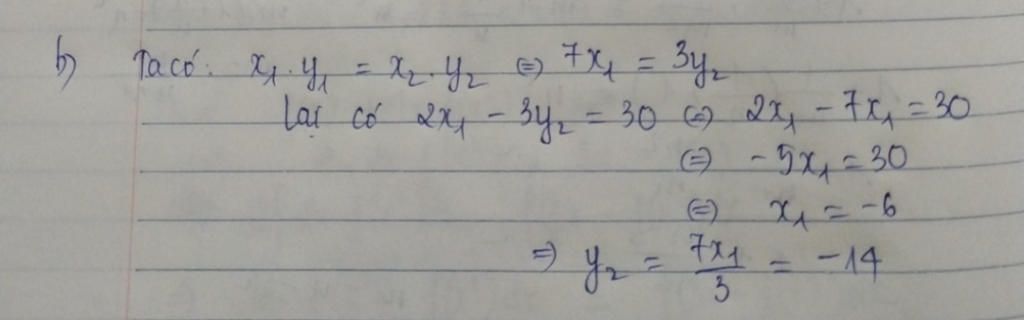 b) Ta có: x₁.y₁ = x₂.y₂ ⇔ 7x₁ = 3y₂
Lại có 2x₁ - 3y₂ = 30 ⇔ 2x₁ - 7x₁ = 30
⇔ -5x₁ = 30
⇔ x₁ = -6
⇒ y₂ = 7x₁/3 = -14